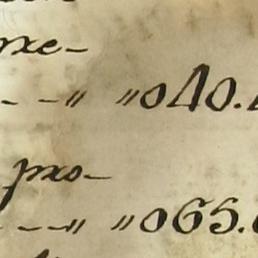 xe-
- -" "040.
pxo-
- - -" "065.